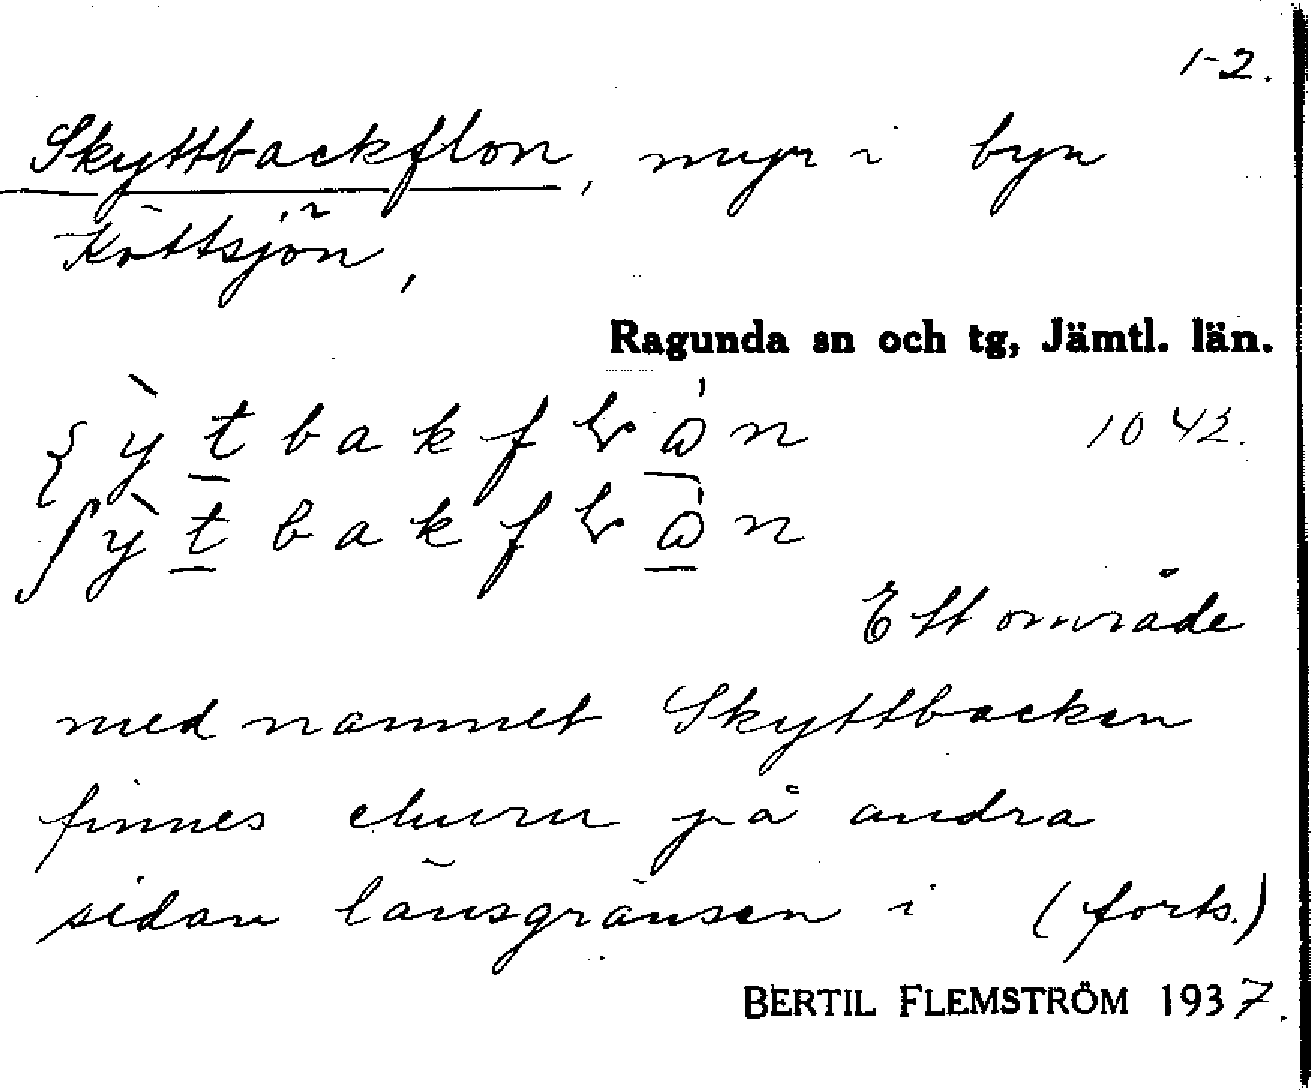 1-2.
Skyttbackflon, myr i byn
Köttsjön,
Ragunda sn och tg, Jämtl. län.
1042.
Ett område
med namnet Skyttbacken
finnes ehuru på andra
sidan länsgränsen i (forts.)
BERTIL FLEMSTRÖM 1937.